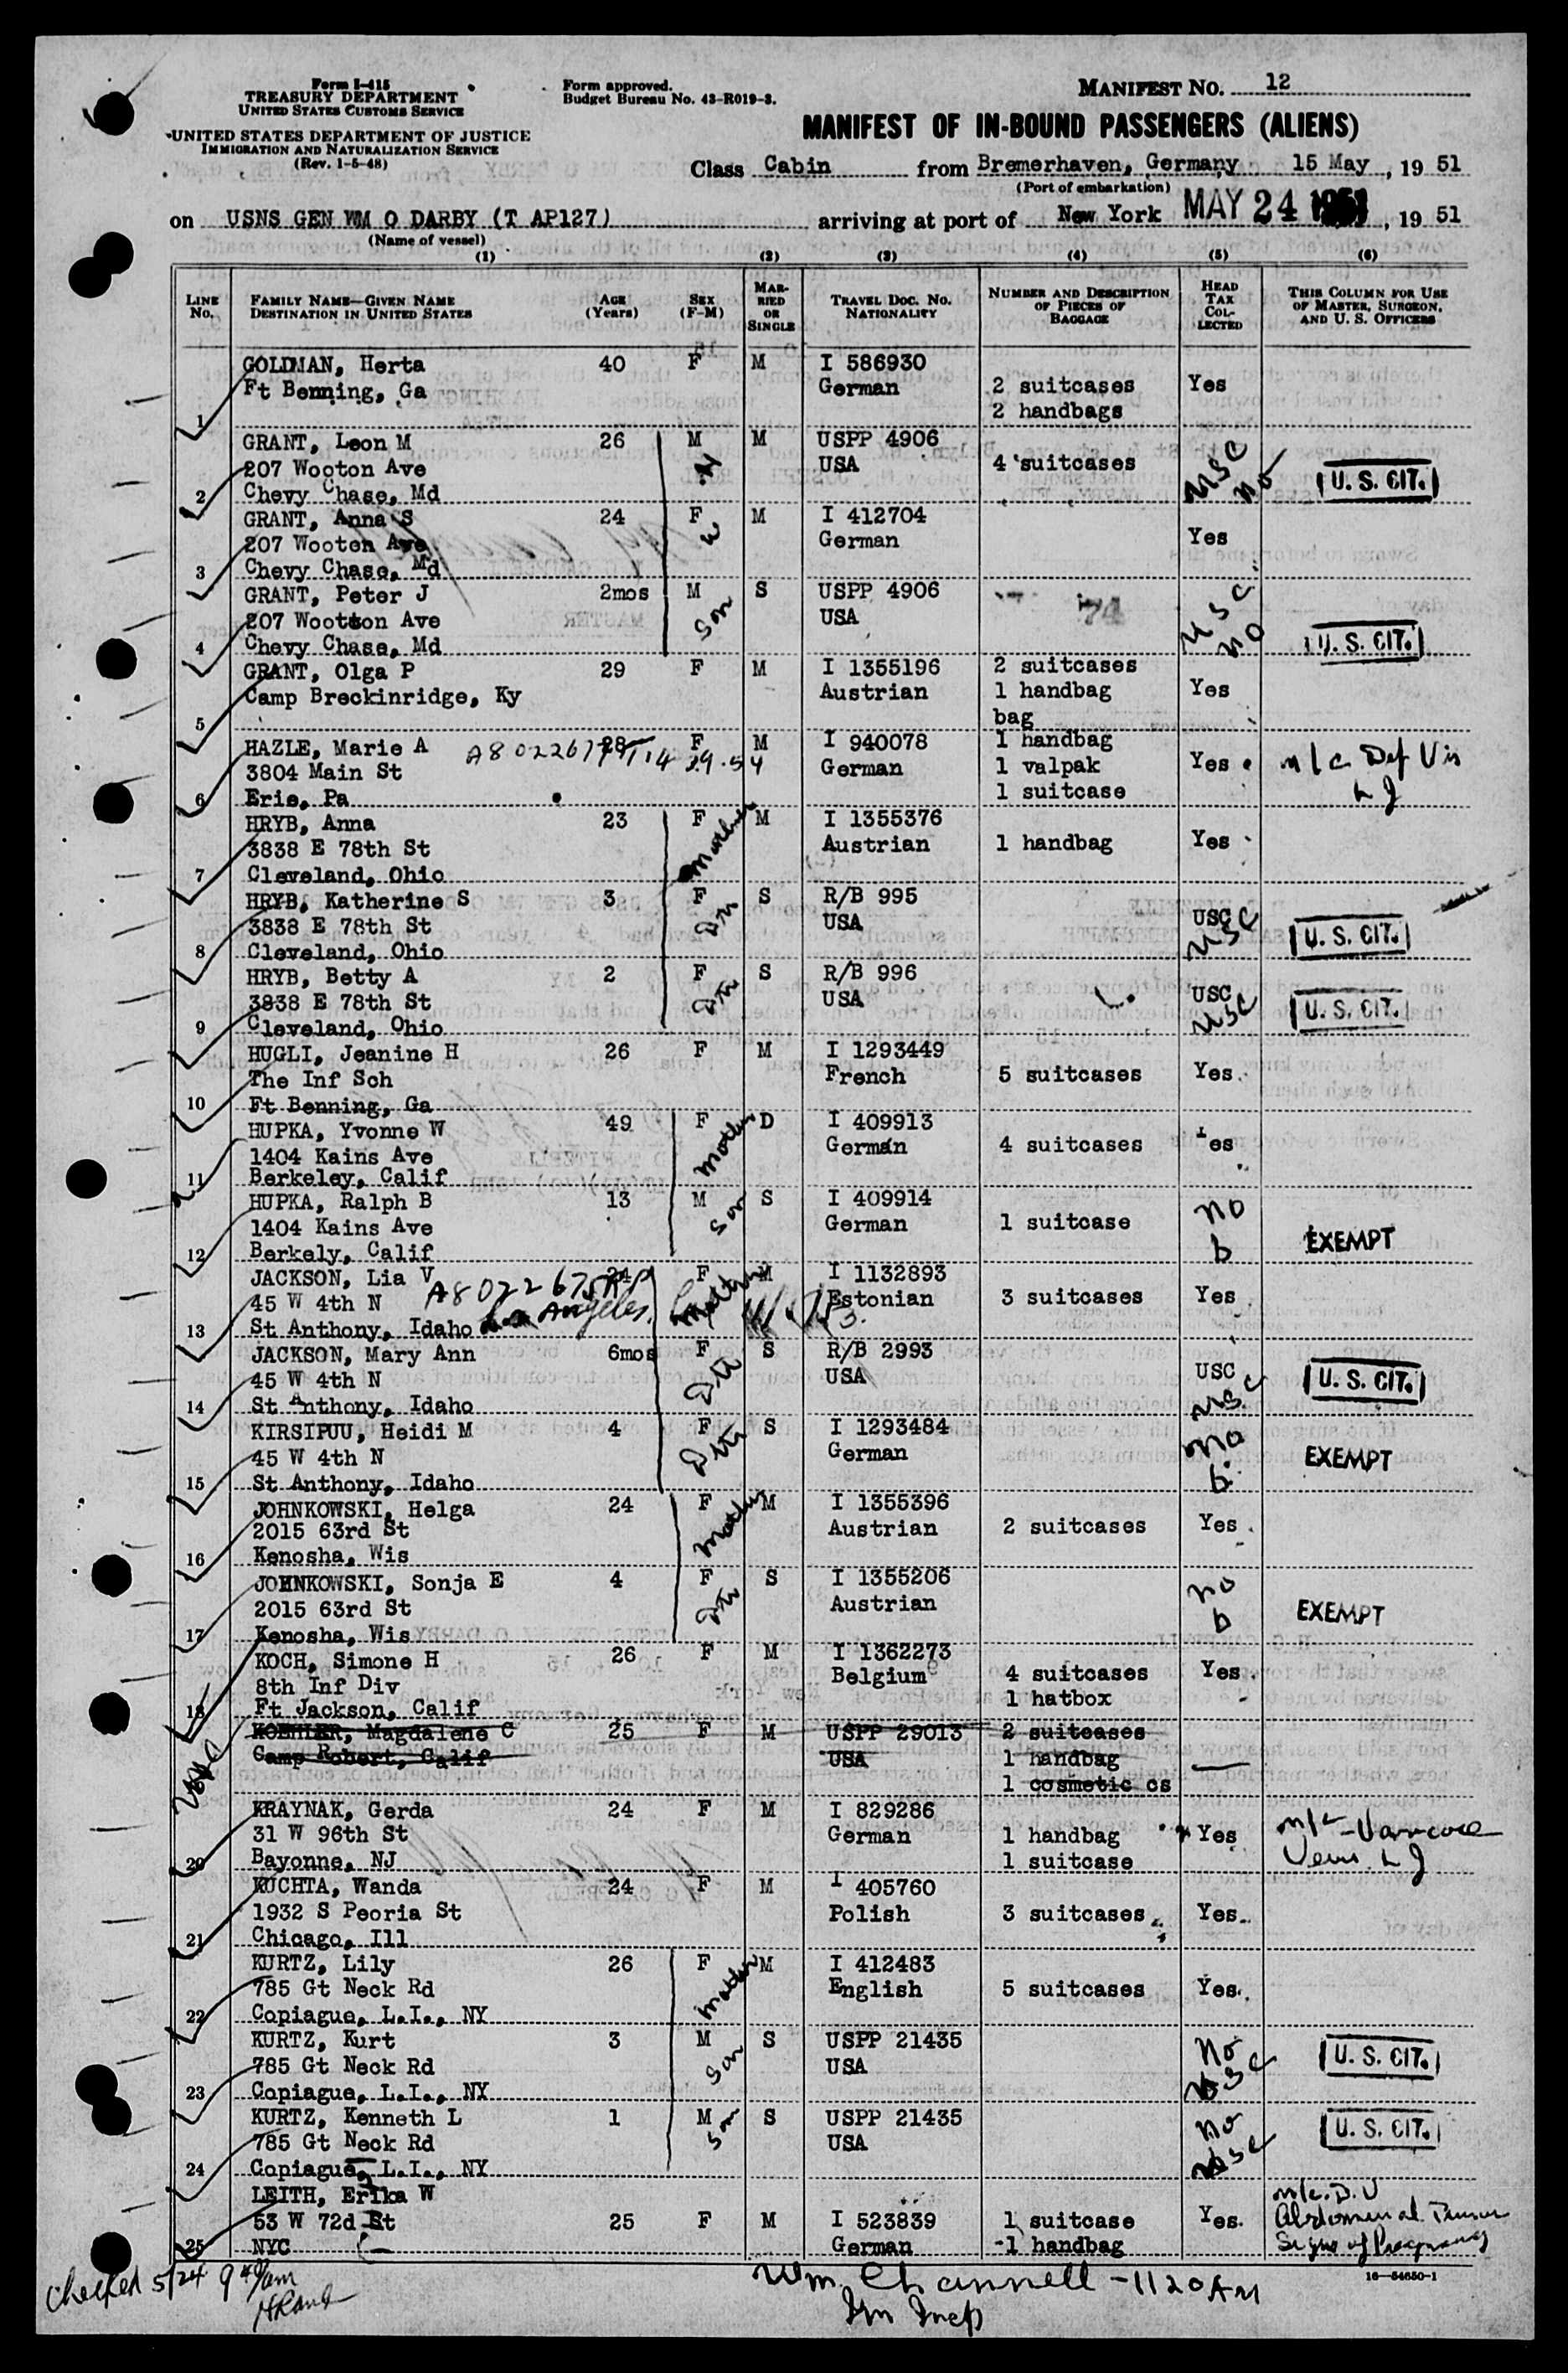 Form I-415
TREASURY DEPARTMENT
UNITED STATES CUSTOMS SERVICE
UNITED STATES DEPARTMENT OF JUSTICE
IMMIGRATION AND NATURALIZATION SERVICE
(Rev. 1-5-48)
Form approved.
Budget Bureau No. 43-R019-3.
MANIFEST NO. 12
MANIFEST OF IN-BOUND PASSENGERS (ALIENS)
Class Cabin from Bremerhaven, Germany 15 May, 19 51
(Port of embarkation)
on USNS GEN WM O DARBY (T AP127) arriving at port of New York MAY 24 1951, 19 51
(Name of vessel)
(1) (2) (3) (4) (5) (6)
LINE No. FAMILY NAME—GIVEN NAME DESTINATION IN UNITED STATES AGE (Years) SEX (F-M) MARRIED OR SINGLE TRAVEL DOC. NO. NATIONALITY NUMBER AND DESCRIPTION OF PIECES OF BAGGAGE HEAD TAX COLLECTED THIS COLUMN FOR USE OF MASTER, SURGEON, AND U. S. OFFICERS
GOLDMAN, Herta 40 F M I 586930
Ft Benning, Ga German 2 suitcases Yes
1 2 handbags
GRANT, Leon M 26 M M USPP 4906
207 Wooton Ave H USA 4 suitcases USC no U. S. CIT.
2 Chevy Chase, Md
GRANT, Anna S 24 F M I 412704
207 Wooten Ave W German Yes
3 Chevy Chase, Md
GRANT, Peter J 2mos M S USPP 4906
207 Wootton Ave Son USA 74 USC no U. S. CIT.
4 Chevy Chase, Md
GRANT, Olga P 29 F M I 1355196 2 suitcases
Camp Breckinridge, Ky Austrian 1 handbag Yes
5 bag
HAZLE, Marie A 28 F M I 940078 1 handbag
3804 Main St German 1 valpak Yes m/c Def Vis
6 Erie, Pa 1 suitcase L J
HRYB, Anna 23 F M I 1355376
3838 E 78th St Mother Austrian 1 handbag Yes
7 Cleveland, Ohio
HRYB, Katherine S 3 F S R/B 995
3838 E 78th St Dtr USA USC USC U. S. CIT.
8 Cleveland, Ohio
HRYB, Betty A 2 F S R/B 996
3838 E 78th St Dtr USA USC USC U. S. CIT.
9 Cleveland, Ohio
HUGLI, Jeanine H 26 F M I 1293449
The Inf Sch French 5 suitcases Yes
10 Ft Benning, Ga
HUPKA, Yvonne W 49 F D I 409913
1404 Kains Ave Mother German 4 suitcases Yes
11 Berkeley, Calif
HUPKA, Ralph B 13 M S I 409914
1404 Kains Ave Son German 1 suitcase no b EXEMPT
12 Berkely, Calif
JACKSON, Lia V 24 F M I 1132893
45 W 4th N Los Angeles Mother Estonian 3 suitcases Yes
13 St Anthony, Idaho
JACKSON, Mary Ann 6mos F S R/B 2993
45 W 4th N Dtr USA USC USC U. S. CIT.
14 St Anthony, Idaho
KIRSIPUU, Heidi M 4 F S I 1293484
45 W 4th N Dtr German no b EXEMPT
15 St Anthony, Idaho
JOHNKOWSKI, Helga 24 F M I 1355396
2015 63rd St Mother Austrian 2 suitcases Yes
16 Kenosha, Wis
JOHNKOWSKI, Sonja E 4 F S I 1355206
2015 63rd St Dtr Austrian no b EXEMPT
17 Kenosha, Wis
KOCH, Simone H 26 F M I 1362273
8th Inf Div Belgium 4 suitcases Yes
18 Ft Jackson, Calif 1 hatbox
KOEHLER, Magdalene C 25 F M USPP 29013 2 suitcases
Camp Robert, Calif USA 1 handbag
1 cosmetic cs
KRAYNAK, Gerda 24 F M I 829286
31 W 96th St German 1 handbag Yes m/c Varicose
20 Bayonne, NJ 1 suitcase Veins L J
KUCHTA, Wanda 24 F M I 405760
1932 S Peoria St Polish 3 suitcases Yes
21 Chicago, Ill
KURTZ, Lily 26 F M I 412483
785 Gt Neck Rd Mother English 5 suitcases Yes
22 Copiague, L.I., NY
KURTZ, Kurt 3 M S USPP 21435
785 Gt Neck Rd Son USA No USC U. S. CIT.
23 Copiague, L.I., NY
KURTZ, Kenneth L 1 M S USPP 21435
785 Gt Neck Rd Son USA No USC U. S. CIT.
24 Copiague, L.I., NY
LEITH, Erika W m/c. D.V
53 W 72d St 25 F M I 523839 1 suitcase Yes Abdominal Tumor
25 NYC German 1 handbag Signs of Pregnancy
Checked 5/24 9 40/am
Wm. Channell - 1120 AM
Im Insp
16—54650-1